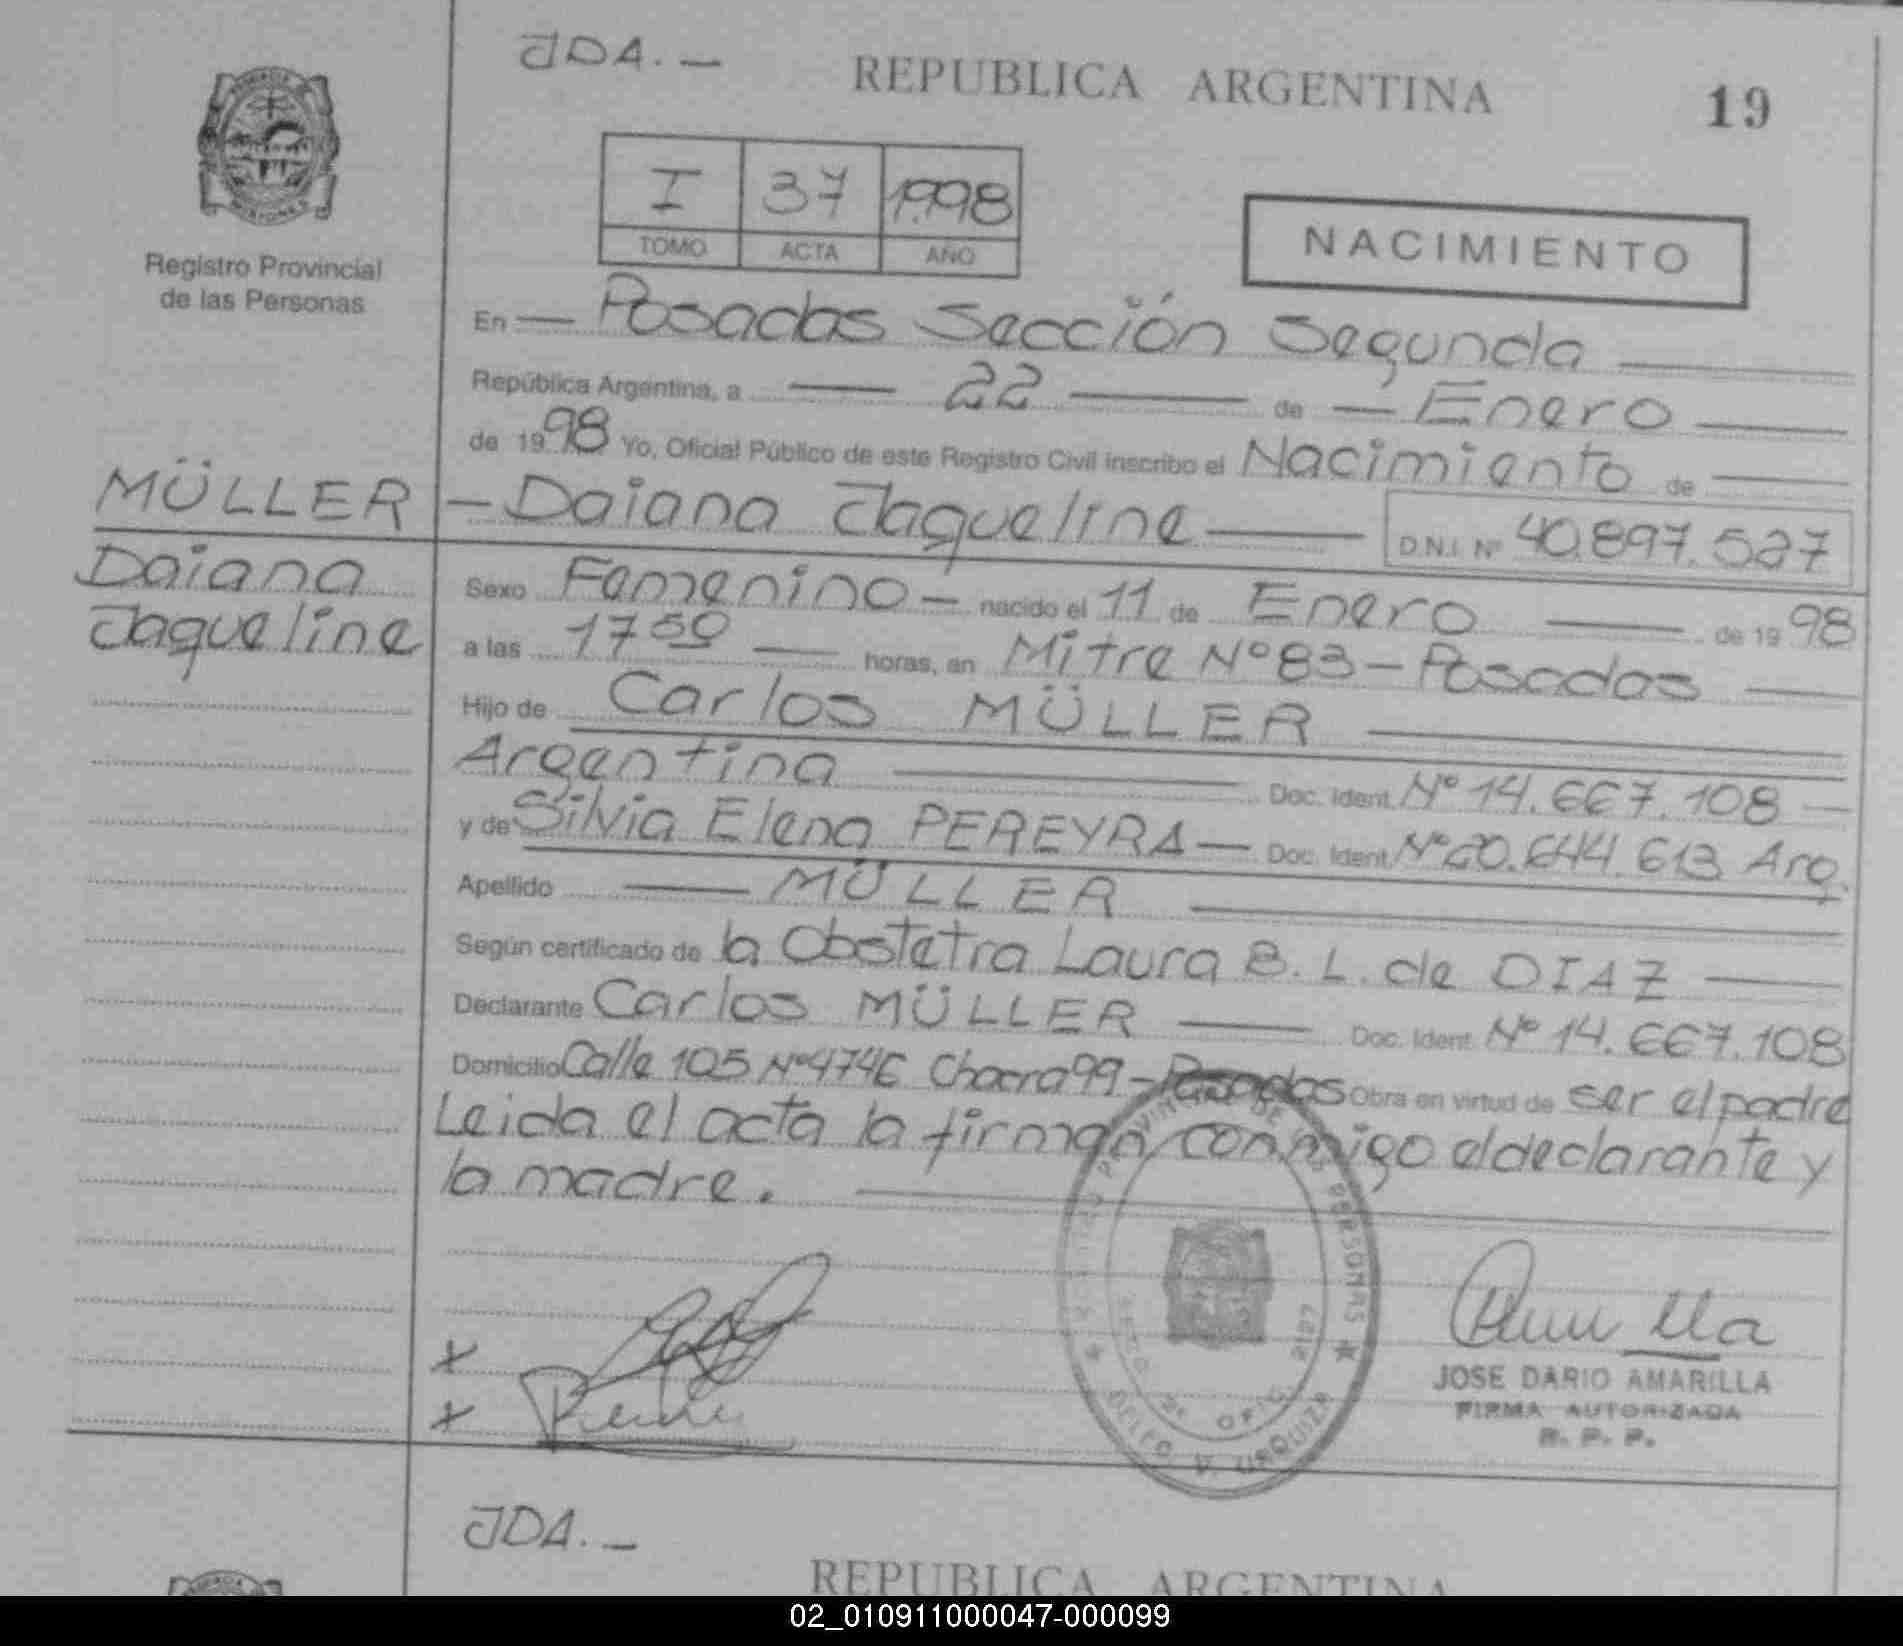 JDA.-
REPUBLICA ARGENTINA 19
I 37 1.998
TOMO ACTA AÑO
NACIMIENTO
MISIONES
Registro Provincial
de las Personas
En — Posadas Sección Segunda —
República Argentina, a — 22 — de — Enero —
de 1998 Yo, Oficial Público de este Registro Civil inscribo el Nacimiento de —
MÜLLER
Daiana
Jaqueline
- Daiana Jaqueline — D.N.I. Nº 40.897.527
Sexo Femenino - nacido el 11 de Enero — de 1998
a las 17 50 — horas, en Mitre Nº 83 - Posadas —
Hijo de Carlos MÜLLER —
Argentina — Doc. Ident. Nº 14.667.108 —
y de Silvia Elena PEREYRA — Doc. Ident. Nº 20.644.613 Arg.
Apellido — MÜLLER —
Según certificado de la Obstetra Laura B. L. de DIAZ —
Declarante Carlos MÜLLER — Doc. Ident. Nº 14.667.108
Domicilio Calle 105 Nº 4746 Chacra 99 - Posadas Obra en virtud de ser el padre
Leida el acta la firman conmigo el declarante y
la madre. —
PROVINCIAL DE LAS PERSONAS
DELFO A. URQUIZA
JOSE DARIO AMARILLA
FIRMA AUTORIZADA
R. P. P.
JDA.-
REPUBLICA ARGENTINA
02_010911000047-000099